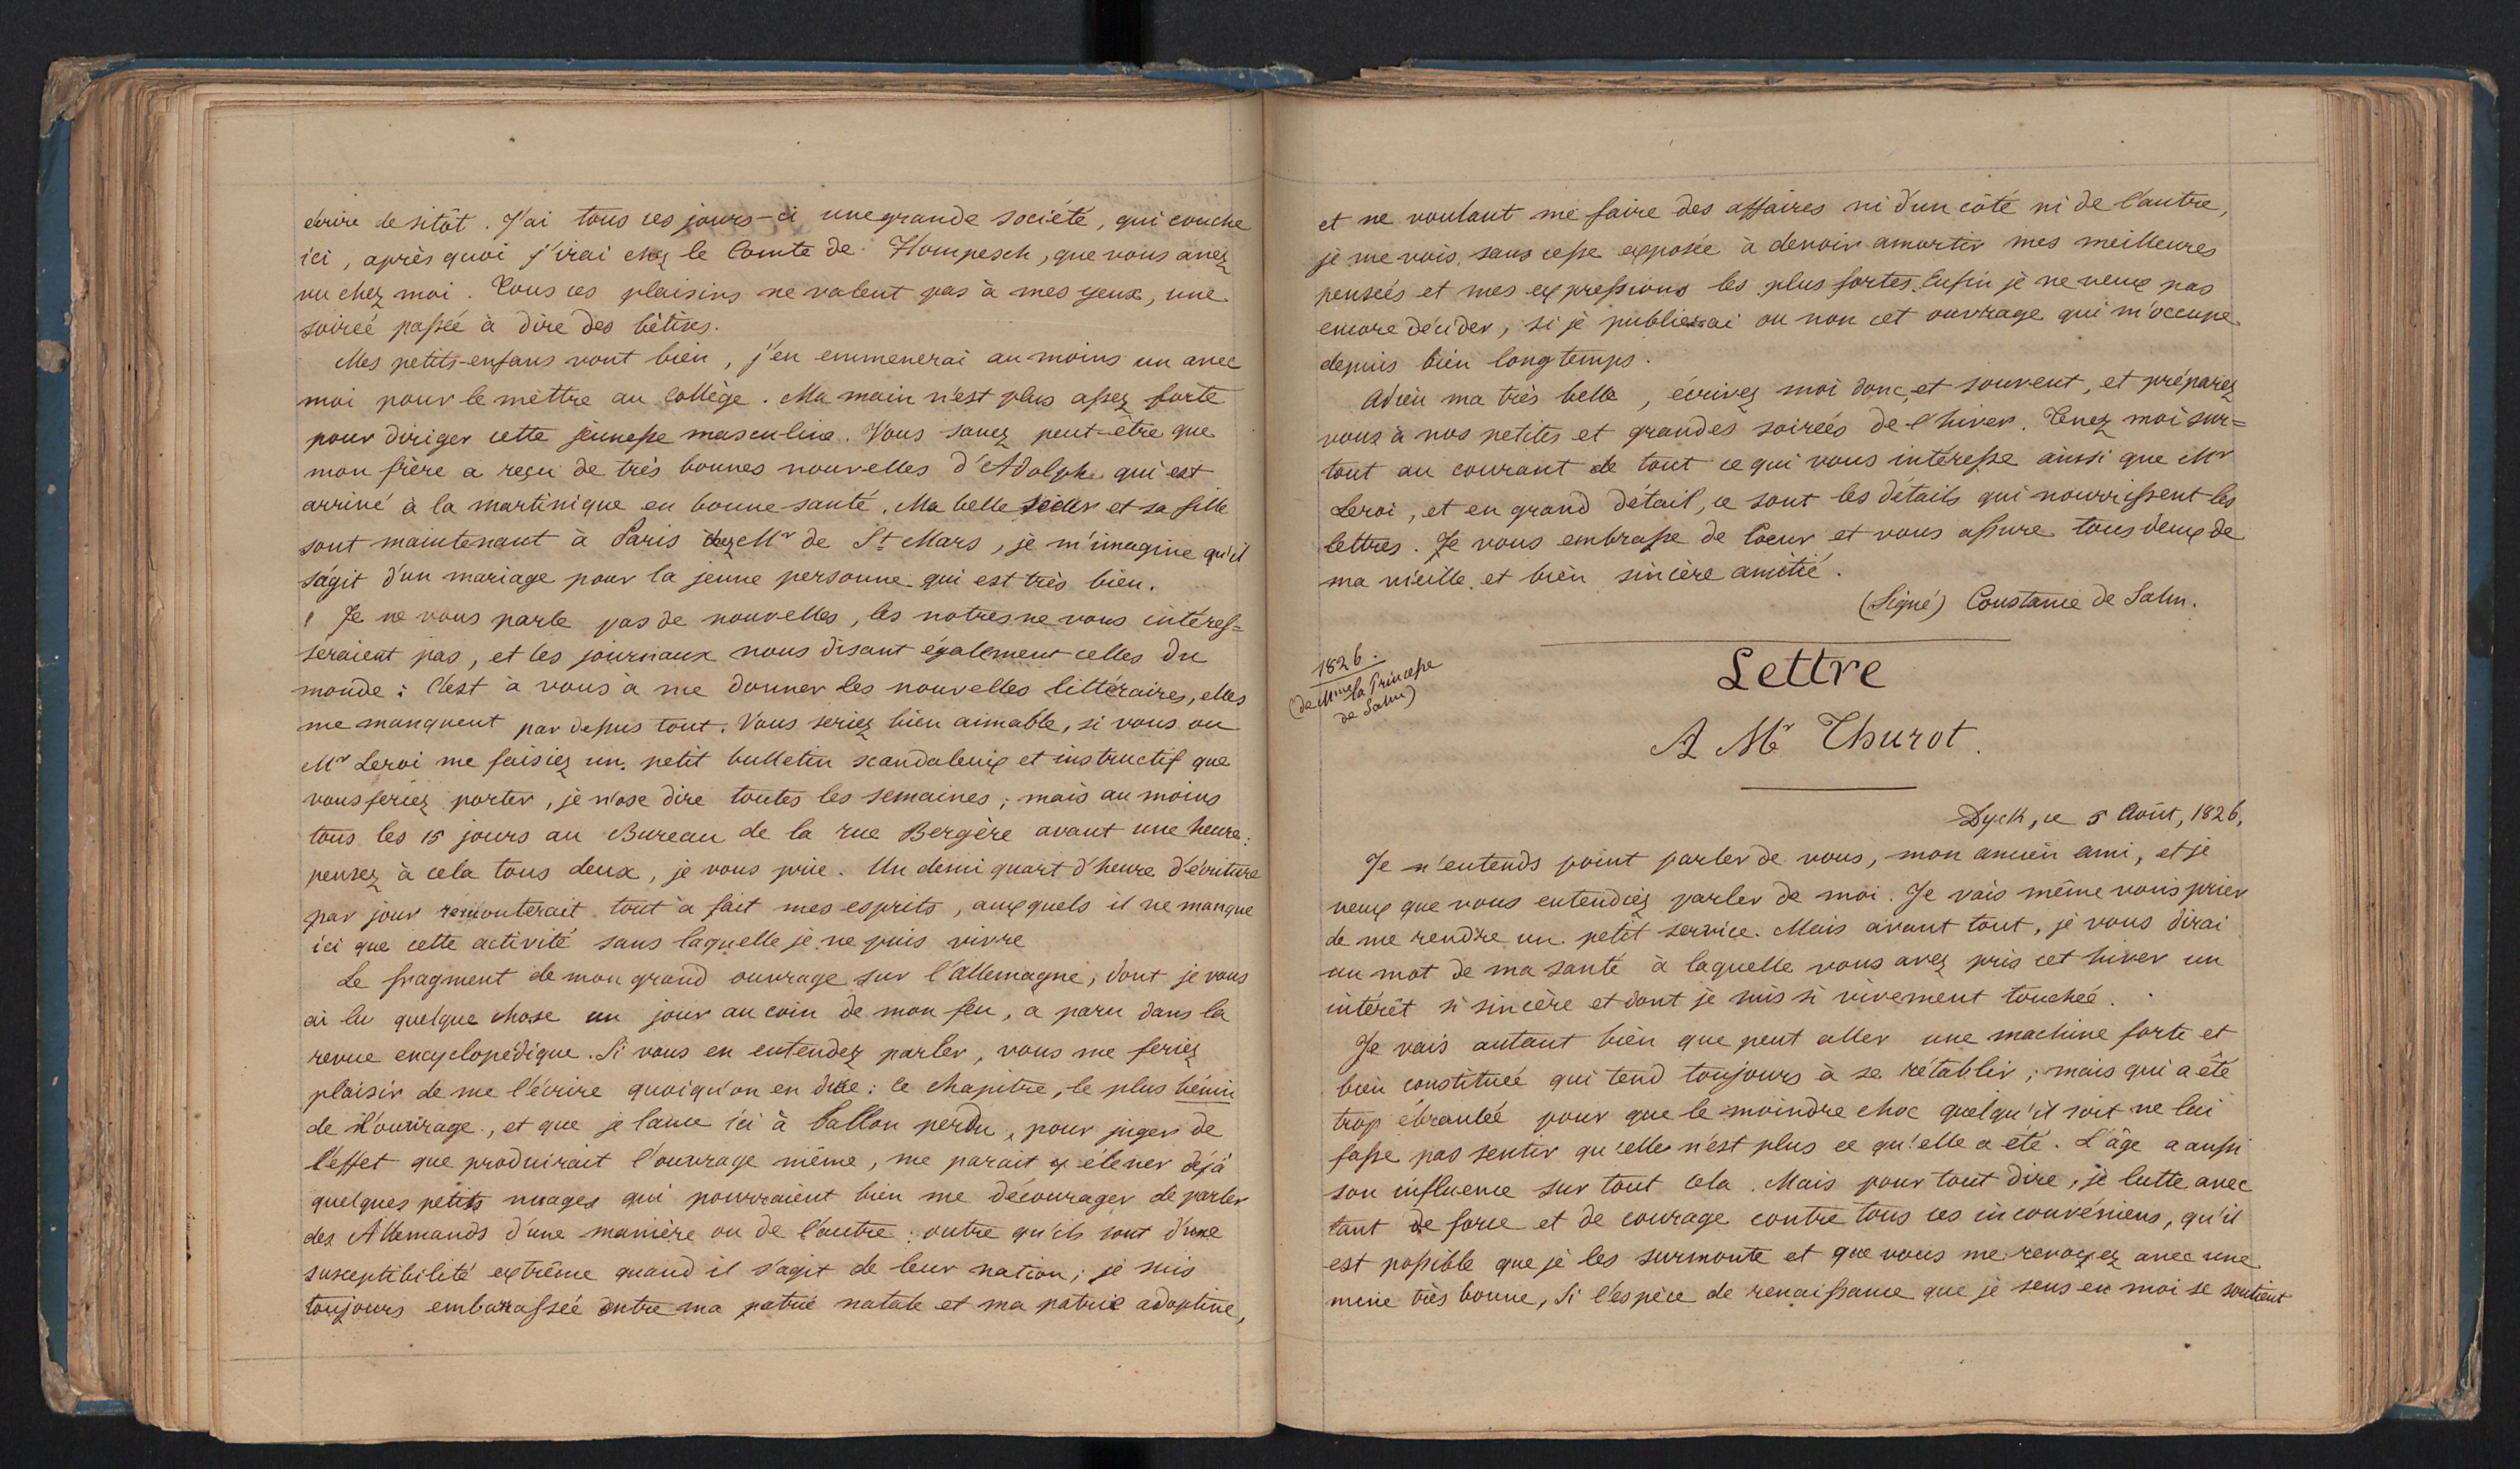 écrire de sitôt. J'ai tous ces jours-ci une grande société, qui couche
ici, après quoi j'irai chez le Comte de Hompesch, que vous avez
vu chez moi. Tous ces plaisirs ne valent pas à mes yeux, une
soireé passée à dire des bêtises.
Mes petits-enfans vont bien, j'en emmenerai au moins un avec
moi pour le mettre au Collège. Ma main n'est plus assez forte
pour diriger cette jeunesse masculine. Vous savez peut-être que
mon frère a reçu de très bonnes nouvelles d'Adolphe qui est
arrivé à la martinique en bonne santé. Ma belle soeur et sa fille
sont maintenant à Paris chez Mr de St Mars, je m'imagine qu'il
s'agit d'un mariage pour la jeune personne qui est très bien.
Je ne vous parle pas de nouvelles, les notres ne vous intéres=
seraient pas, et les journaux nous disant également celles du
monde: C'est à vous à me donner les nouvelles littéraires, elles
me manquent par dessus tout. Vous seriez bien aimable, si vous ou
Mr Leroi me faisiez un petit bulletin scandaleux et instructif que
vous feriez porter, je n'ose dire toutes les semaines; mais au moins
tous les 15 jours au Bureau de la rue Bergère avant une heure:
pensez à cela tous deux, je vous prie. Un demi quart d'heure d'écriture
par jour remonterait tout à fait mes esprits, auxquels il ne manque
ici que cette activité sans laquelle je ne puis vivre
Le fragment de mon grand ouvrage sur l'Allemagne, dont je vous
ai lu quelque chose un jour au coin de mon feu, a paru dans la
revue encyclopédique. Si vous en entendez parler, vous me feriez
plaisir de me l'écrire quoiqu'on en dise: Ce chapitre, le plus bénin
de l'ouvrage, et que je lance ici à ballon perdu, pour juger de
l'effet que produirait l'ouvrage même, me parait élever déjà
quelques petits nuages qui pourraient bien me décourager de parler
des Allemands d'une manière ou de l'autre: outre qu'ils sont d'une
susceptibilité extrême quand il s'agit de leur nation; je suis
toujours embarassée entre ma patrie natale et ma patrie adoptive,
et ne voulant me faire des affaires ni d'un côté ni de l'autre,
je me vois sans cesse exposée à devoir amortir mes meilleures
penseés et mes expressions les plus fortes. Enfin je ne veux pas
encore décider, si je publierai ou non cet ouvrage qui m'occupe
depuis bien longtemps.
Adieu ma très belle, écrivez moi donc et souvent, et préparez
vous à nos petites et grandes soireés de l'hiver. Tenez moi sur=
tout au courant de tout ce qui vous intéresse ainsi que Mr
Leroi, et en grand détail, ce sont les détails qui nourrissent les
lettres. Je vous embrasse de Coeur et vous assure tous deux de
ma vieille et bien sincère amitié.
(Signé) Constance de Salm.
1826.
(de Mme la Princesse
de Salm)
Lettre
A Mr Thurot.
Dyck, ce 5 Août, 1826,
Je n'entends point parler de vous, mon ancien ami, et je
veux que vous entendiez parler de moi. Je vais même vous prier
de me rendre un petit service. Mais avant tout, je vous dirai
un mot de ma santé à laquelle vous avez pris cet hiver un
intérêt si sincère et dont je suis si vivement toucheé.
Je vais autant bien que peut aller une machine forte et
bien constitueé qui tend toujours à se rétablir; mais qui a été
trop ébranleé pour que le moindre choc quelqu'il soit ne lui
fasse pas sentir qu'elle n'est plus ce qu'elle a été. L'âge a aussi
son influence sur tout cela. Mais pour tout dire, je lutte avec
tant de force et de courage contre tous ces inconvéniens, qu'il
est possible que je les surmonte et que vous me revoyez avec une
mine très bonne, Si l'espèce de renaissance que je sens en moi se soutient